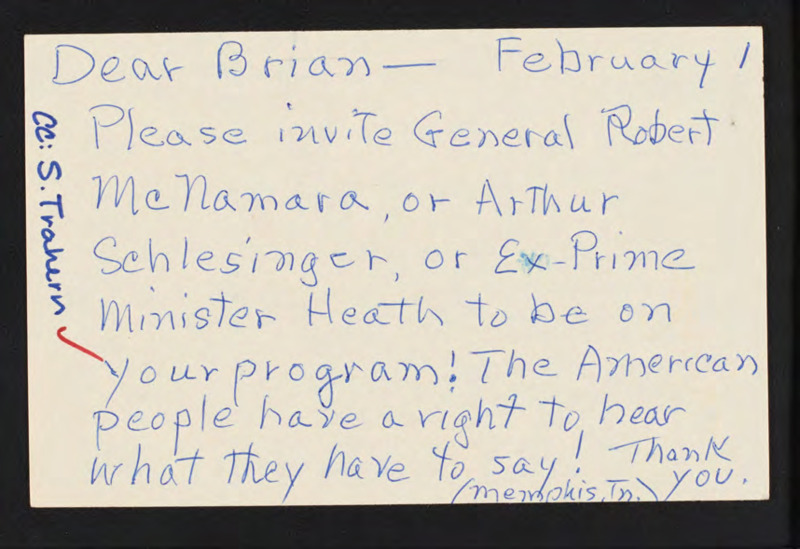 Dear Brian — February 1
Please invite General Robert
McNamara, or Arthur
Schlesinger, or Ex-Prime
Minister Heath to be on
your program! The American
people have a right to hear
what they have to say! Thank
you.
(Memphis, Tn.)
CC: S. Trahern